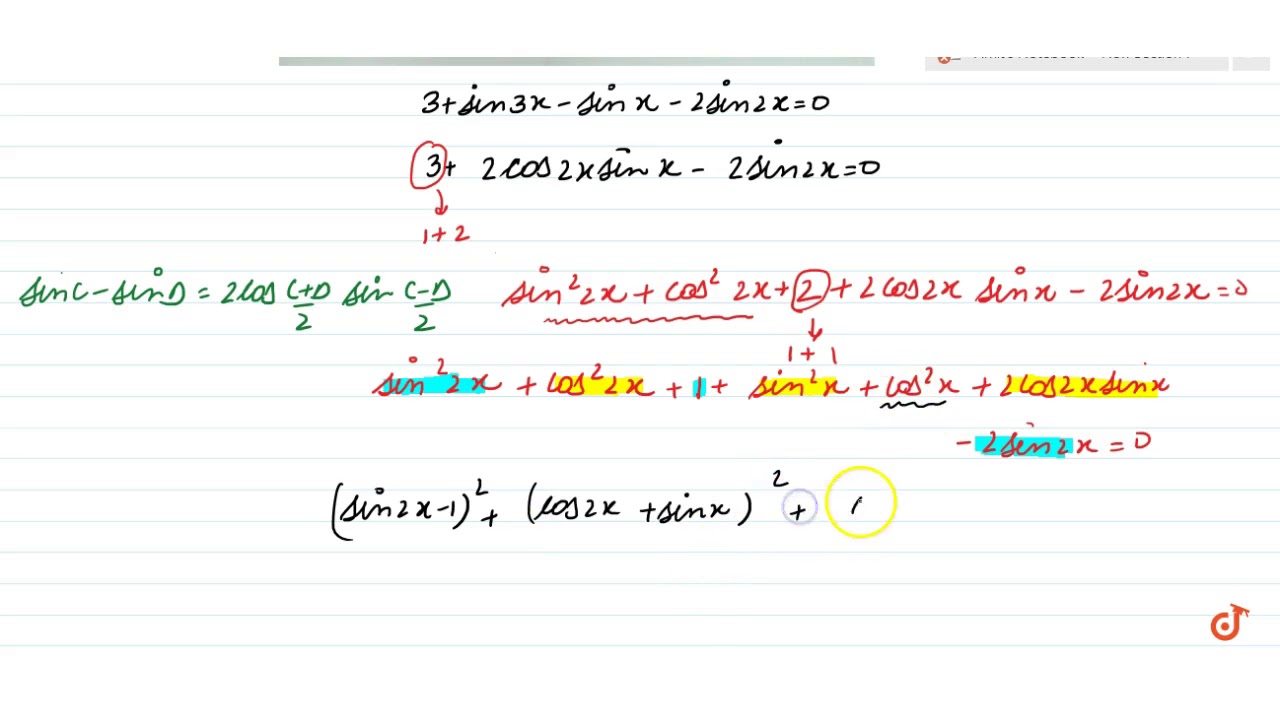 3+sin3x-sinx-2sin2x=0
3+ 2cos2xsinx- 2sin2x=0
1+2
sinC-sinD=2cos C+D/2 sin C-D/2 sin²2x+cos²2x+2+2cos2x sinx-2sin2x=0
1+1
sin²2x+cos²2x+1+sin²x+cos²x+2cos2xsinx
-2sin2x=0
(sin2x-1)²+(cos2x+sinx)²+